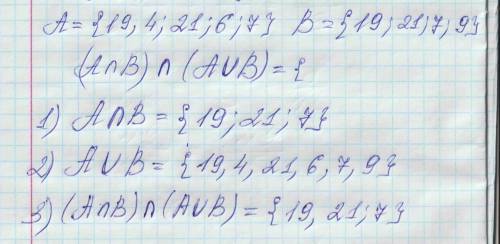 A = {19, 4; 21; 6; 7} B = {19; 21; 7, 9}
(A∩B) ∩ (A∪B) = {
1) A∩B = {19; 21; 7}
2) A∪B = {19, 4, 21, 6, 7, 9}
3) (A∩B)∩(A∪B) = {19, 21; 7}